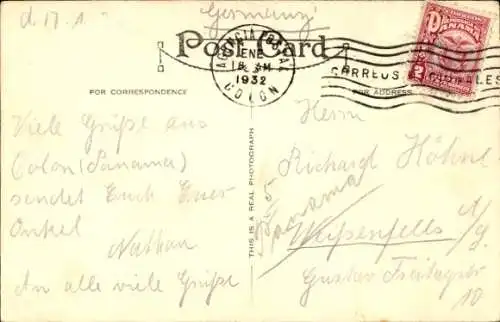 d. 17. 1.
Germany
Post Card
AGENCIA POSTAL
ENE
18 AM
1932
COLON
PANAMA
2
CORREOS
FOR CORRESPONDENCE
FOR ADDRESS
THIS IS A REAL PHOTOGRAPH
Viele Grüße aus
Colon (Panama)
sendet Euch Euer
Onkel
Nathan
An alle viele Grüße
Herrn
Richard Höhne
Panama
Weißenfells
Gustav Freitagstr
10